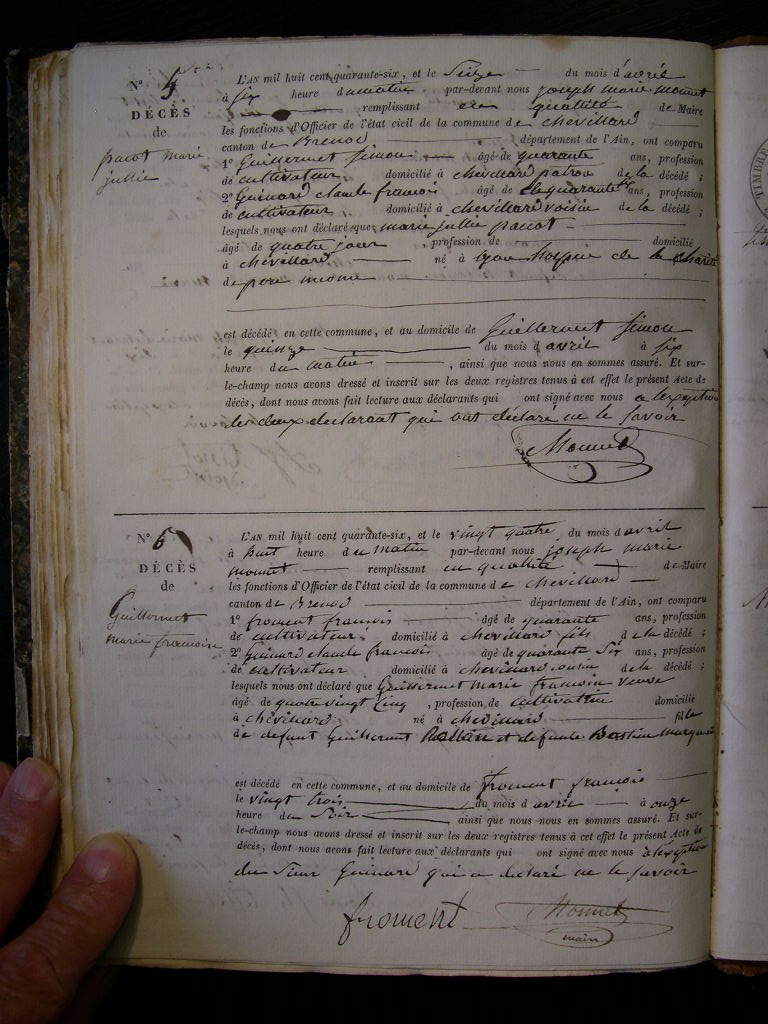 N° 5
DÉCÈS
de
pacot marie
jullie
L'AN mil huit cent quarante-six, et le Seize du mois d'avril
à six heure du matin par-devant nous joseph marie monnet
remplissant en qualité de Maire
les fonctions d'Officier de l'état civil de la commune de chevillard
canton de Brenod département de l'Ain, ont comparu
1° Guillermet simon âgé de quarante ans, profession
de cultivateur domicilié à chevillard patron de la décédé ;
2° Guinard claude francois âgé de quarante ans, profession
de cultivateur domicilié à chevillard voisin de la décédé ;
lesquels nous ont déclaré que marie jullie pacot
âgé de quatre jour , profession de domicilié
à chevillard né à lyon hospice de la charité
de pere inconu
est décédé en cette commune, et au domicile de Guillermet simon
le quinze du mois d'avril à six
heure du matin , ainsi que nous nous en sommes assuré. Et sur-
le-champ nous avons dressé et inscrit sur les deux registres tenus à cet effet le présent Acte de
décès, dont nous avons fait lecture aux déclarants qui ont signé avec nous a lexeption
des deux declarant qui ont déclaré ne le savoir
Monnet
N° 6
DÉCÈS
de
Guillermet
marie francoise
L'AN mil huit cent quarante-six, et le vingt quatre du mois d'avril
à huit heure du matin par-devant nous joseph marie
monnet remplissant en qualité de Maire
les fonctions d'Officier de l'état civil de la commune de chevillard
canton de Brenod département de l'Ain, ont comparu
1° froment francois âgé de quarante ans, profession
de cultivateur domicilié à chevillard fils de la décédé ;
2° Guinard claude francois âgé de quarante six ans, profession
de cultivateur domicilié à chevillard cousin de la décédé ;
lesquels nous ont déclaré que Guillermet marie francoise veuve
âgé de quatre vingt cinq , profession de cultivatrice domicilié
à chevillard né à chevillard fille
de defunt Guillermet et defunte Bastien
est décédé en cette commune, et au domicile de froment francois
le vingt trois du mois d'avril à onze
heure du soir ainsi que nous nous en sommes assuré. Et sur-
le-champ nous avons dressé et inscrit sur les deux registres tenus à cet effet le présent Acte de
décès, dont nous avons fait lecture aux déclarants qui ont signé avec nous à lexeption
du sieur Guinard qui a declaré ne le savoir
froment
Monnet
maire
TIMBRE